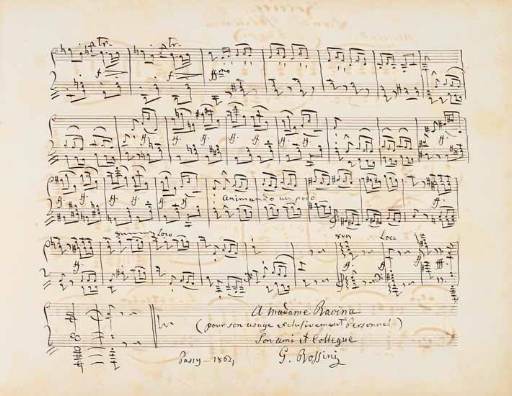 tr. tr.
animando un poco
Loco
Loco
A madame Ravina
(pour son usage exclusivement Personnel)
Son ami et Collegue
Passy - 1862, G. Rossini